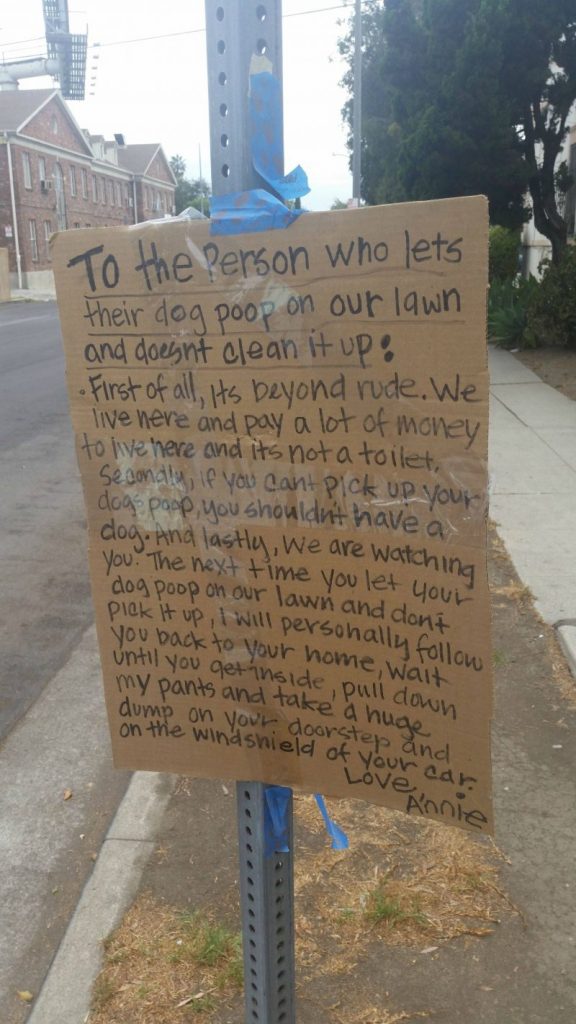 To the Person who lets
their dog poop on our lawn
and doesnt clean it up:
• First of all, its beyond rude. We
live here and pay a lot of money
to live here and its not a toilet.
Secondly, if you cant pick up your
dogs poop, you shouldn't have a
dog. And lastly, we are watching
you. The next time you let your
dog poop on our lawn and dont
pick it up, I will personally follow
you back to your home, wait
until you get inside, pull down
my pants and take a huge
dump on your doorstep and
on the windshield of your car.
Love,
Annie